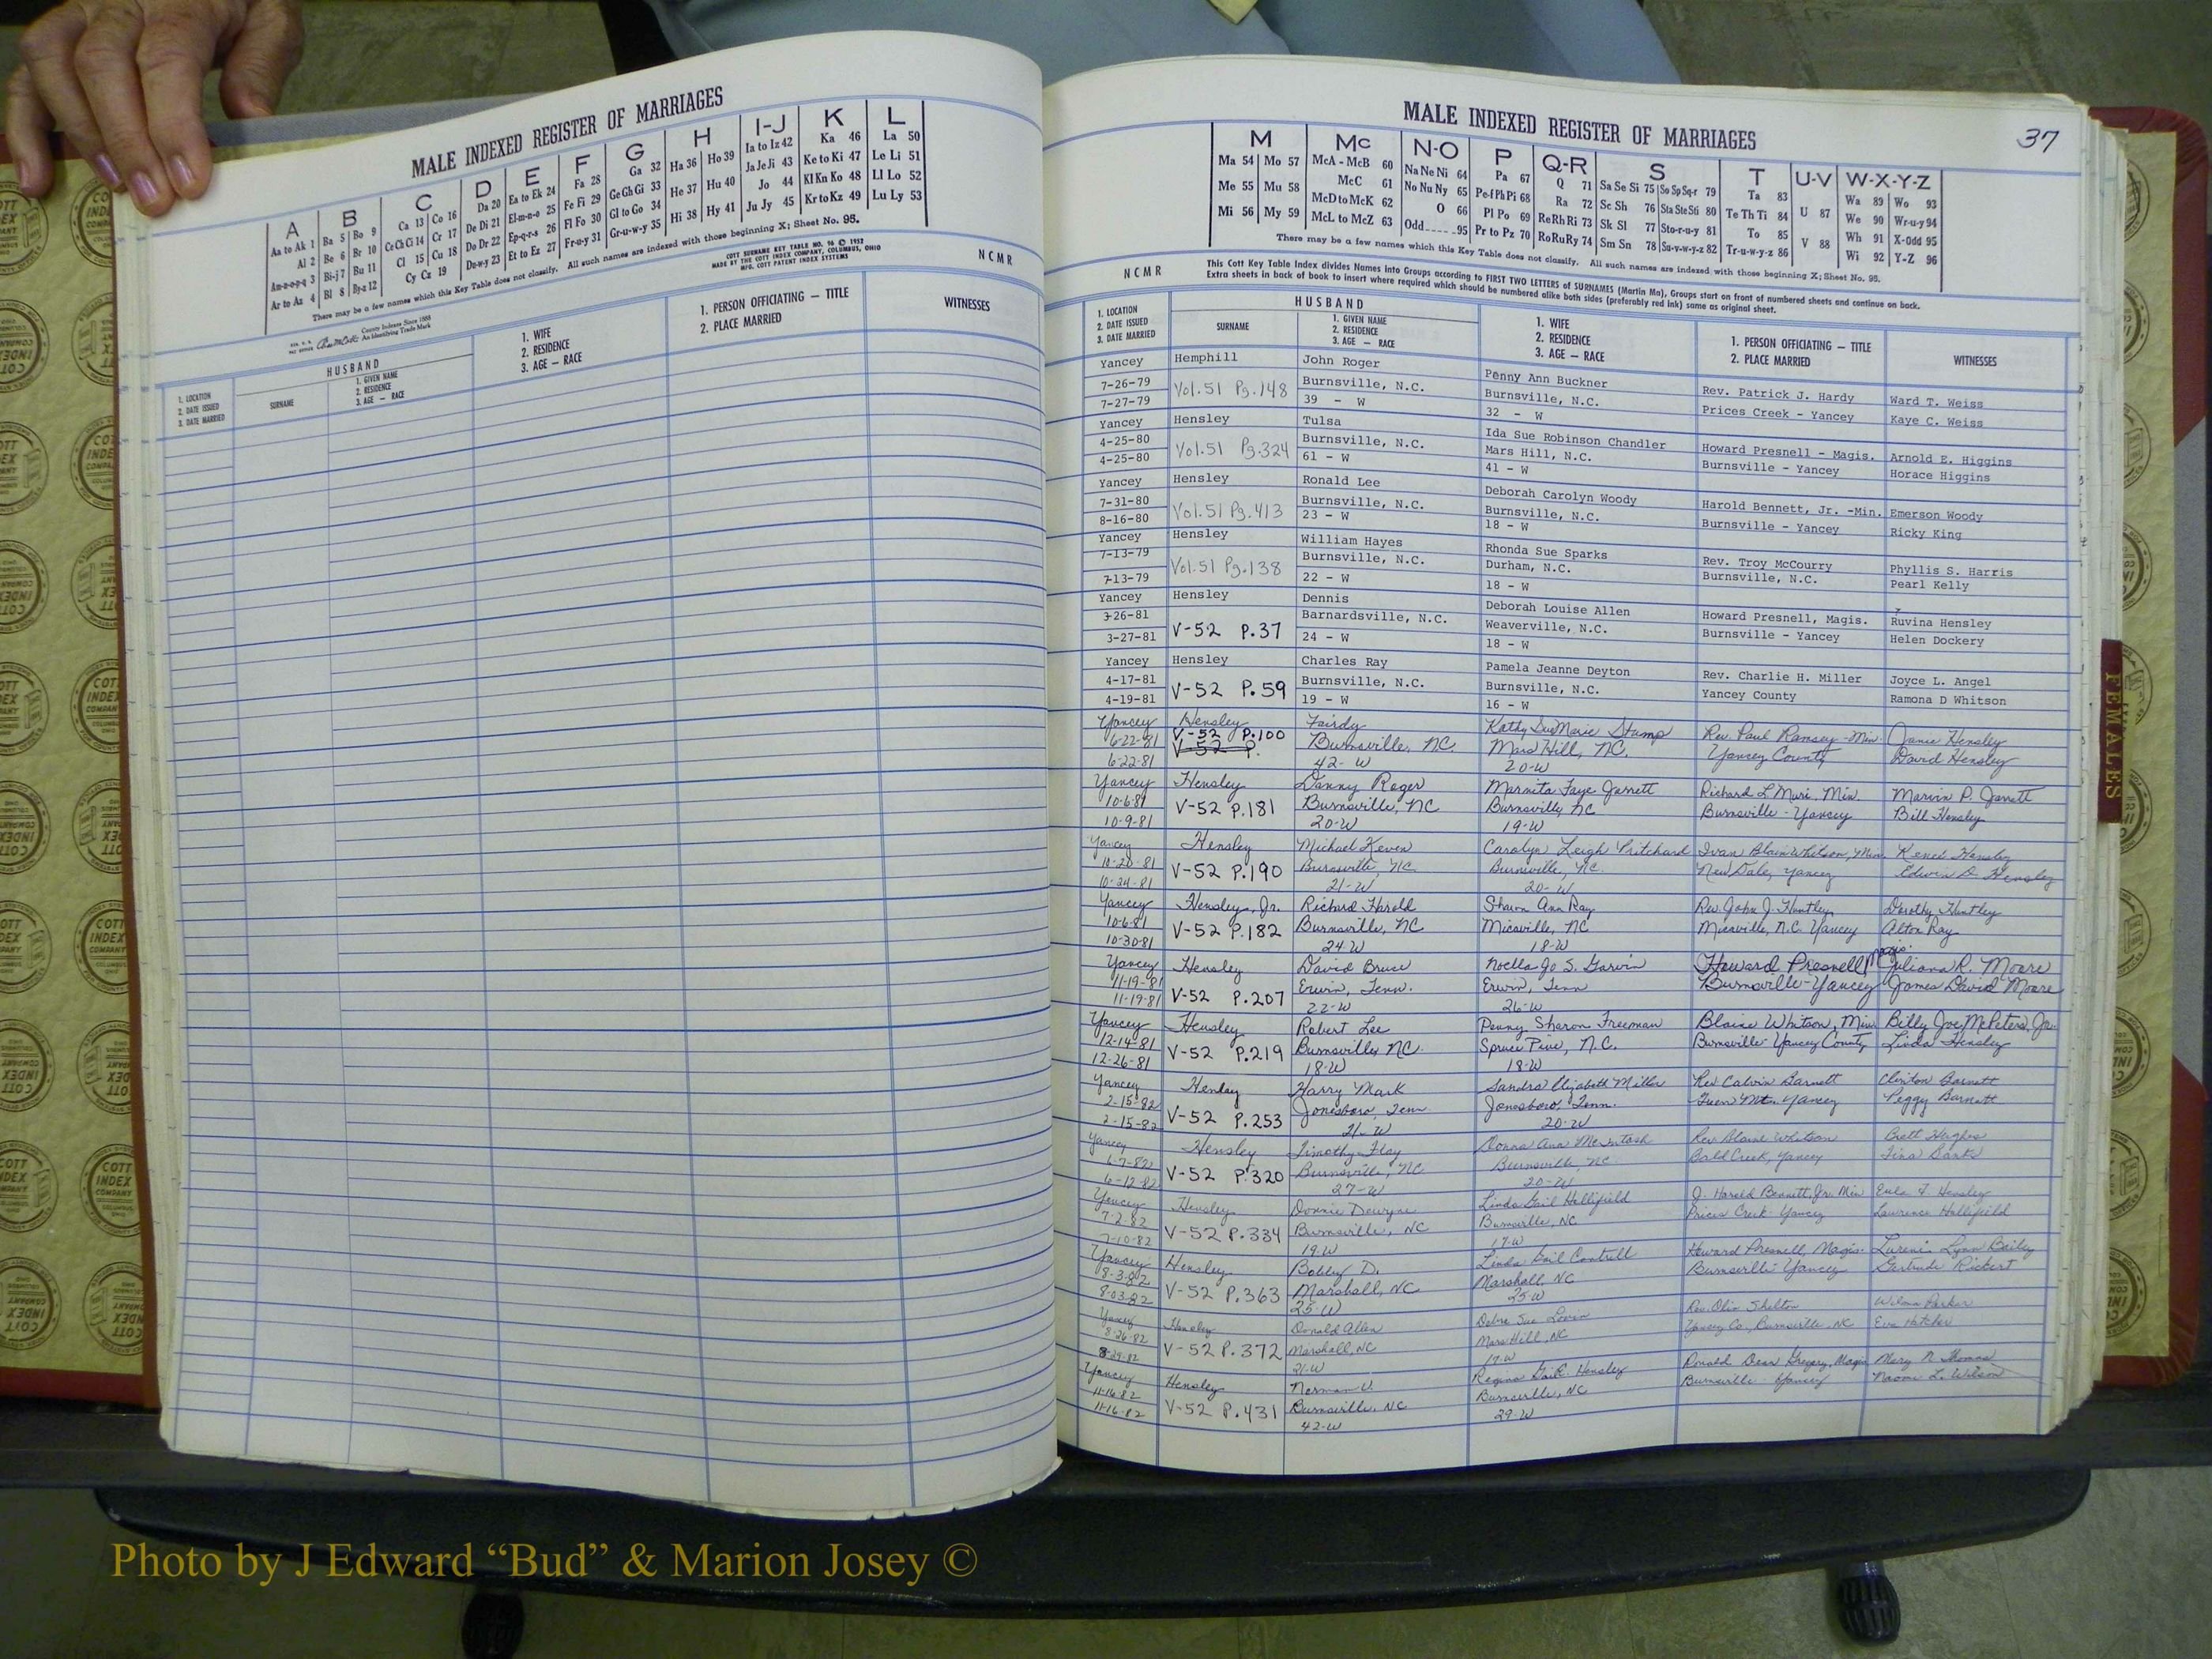 MALE INDEXED REGISTER OF MARRIAGES
A B C D E F G H I-J K L
Aa to Ak 1 Ba 5 Bo 9 Ca 13 Co 16 Da 20 Ea to Ek 24 Fa 28 Ga 32 Ha 36 Ho 39 Ia to Iz 42 Ka 46 La 50
Al 2 Be 6 Br 10 Ce Ch Ci 14 Cr 17 De Di 21 El-m-n-o 25 Fe Fi 29 Ge Gh Gi 33 He 37 Hu 40 Ja Je Ji 43 Ke to Ki 47 Le Li 51
Am-n-o-p-q 3 Bi-j 7 Bu 11 Cl 15 Cu 18 Do Dr 22 Ep-q-r-s 26 Fl Fo 30 Gl to Go 34 Hi 38 Hy 41 Jo 44 Kl Kn Ko 48 Ll Lo 52
Ar to Az 4 Bl 8 By-z 12 Cy Cz 19 Du-w-y 23 Et to Ez 27 Fr-u-y 31 Gr-u-w-y 35 Ju Jy 45 Kr to Kz 49 Lu Ly 53
There may be a few names which this Key Table does not classify. All such names are indexed with those beginning X; Sheet No. 95.
COTT SURNAME KEY TABLE NO. 96 © 1952
MADE BY THE COTT INDEX COMPANY, COLUMBUS, OHIO
MFG. COTT PATENT INDEX SYSTEMS
NCMR
County Indexes Since 1888
An Identifying Trade Mark
HUSBAND
1. LOCATION
2. DATE ISSUED
3. DATE MARRIED
SURNAME
1. GIVEN NAME
2. RESIDENCE
3. AGE — RACE
1. WIFE
2. RESIDENCE
3. AGE — RACE
1. PERSON OFFICIATING — TITLE
2. PLACE MARRIED
WITNESSES
MALE INDEXED REGISTER OF MARRIAGES
37
M Mc N-O P Q-R S T U-V W-X-Y-Z
Ma 54 Mo 57 McA - McB 60 Na Ne Ni 64 Pa 67 Q 71 Sa Se Si 75 So Sp Sq-r 79 Ta 83 U 87 Wa 89 Wo 93
Me 55 Mu 58 McC 61 No Nu Ny 65 Pe-f Ph Pi 68 Ra 72 Sc Sh 76 Sta Ste Sti 80 Te Th Ti 84 V 88 We 90 Wr-u-y 94
Mi 56 My 59 McD to McK 62 O 66 Pl Po 69 Re Rh Ri 73 Sk Sl 77 Sto-r-u-y 81 To 85 Wh 91 X-Odd 95
McL to McZ 63 Odd 95 Pr to Pz 70 Ro Ru Ry 74 Sm Sn 78 Su-v-w-y-z 82 Tr-u-w-y-z 86 Wi 92 Y-Z 96
There may be a few names which this Key Table does not classify. All such names are indexed with those beginning X; Sheet No. 95.
NCMR
This Cott Key Table Index divides Names into Groups according to FIRST TWO LETTERS of SURNAMES (Martin Ma), Groups start on front of numbered sheets and continue on back.
Extra sheets in back of book to insert where required which should be numbered alike both sides (preferably red ink) same as original sheet.
HUSBAND
1. LOCATION
2. DATE ISSUED
3. DATE MARRIED
SURNAME
1. GIVEN NAME
2. RESIDENCE
3. AGE — RACE
1. WIFE
2. RESIDENCE
3. AGE — RACE
1. PERSON OFFICIATING — TITLE
2. PLACE MARRIED
WITNESSES
Yancey Hemphill John Roger Penny Ann Buckner Rev. Patrick J. Hardy Ward T. Weiss
7-26-79 Vol.51 Pg.148 Burnsville, N.C. Burnsville, N.C. Prices Creek - Yancey Kaye C. Weiss
7-27-79 39 - W 32 - W
Yancey Hensley Tulsa Ida Sue Robinson Chandler Howard Presnell - Magis. Arnold E. Higgins
4-25-80 Vol.51 Pg.324 Burnsville, N.C. Mars Hill, N.C. Burnsville - Yancey Horace Higgins
4-25-80 61 - W 41 - W
Yancey Hensley Ronald Lee Deborah Carolyn Woody Harold Bennett, Jr. -Min. Emerson Woody
7-31-80 Vol.51 Pg.413 Burnsville, N.C. Burnsville, N.C. Burnsville - Yancey Ricky King
8-16-80 23 - W 18 - W
Yancey Hensley William Hayes Rhonda Sue Sparks Rev. Troy McCourry Phyllis S. Harris
7-13-79 Vol.51 Pg.138 Burnsville, N.C. Durham, N.C. Burnsville, N.C. Pearl Kelly
7-13-79 22 - W 18 - W
Yancey Hensley Dennis Deborah Louise Allen Howard Presnell, Magis. Ruvina Hensley
3-26-81 V-52 P.37 Barnardsville, N.C. Weaverville, N.C. Burnsville - Yancey Helen Dockery
3-27-81 24 - W 18 - W
Yancey Hensley Charles Ray Pamela Jeanne Deyton Rev. Charlie H. Miller Joyce L. Angel
4-17-81 V-52 P.59 Burnsville, N.C. Burnsville, N.C. Yancey County Ramona D Whitson
4-19-81 19 - W 16 - W
Yancey Hensley Fairdy Kathy Sue Marie Stump Rev. Paul Ramsey - Min. Janie Hensley
6-22-81 V-52 P.100 V-52 P. Burnsville, NC. Mars Hill, NC. Yancey County David Hensley
6-22-81 42- W 20-W
Yancey Hensley Danny Roger Marnita Faye Jarrett Richard L. Min. Marvin P. Jarrett
10-6-81 V-52 P.181 Burnsville, NC Burnsville, NC Burnsville - Yancey Bill Hensley
10-9-81 20-W 19-W
Yancey Hensley Michael Keven Carolyn Leigh Pritchard Ivan Blain Whitson, Min. Hensley
10-20-81 V-52 P.190 Burnsville, NC Burnsville, NC. New Dale, Yancey Edwin D. Hensley
10-24-81 21-W 20-W
Yancey Hensley, Jr. Richard Harold Sharon Ann Ray Rev. John J. Huntley Dorothy Huntley
10-6-81 V-52 P.182 Burnsville, NC Micaville, NC Micaville, N.C. Yancey Alton Ray
10-30-81 24-W 18-W
Yancey Hensley David Bruce Noella Jo S. Garvin Howard Presnell, Magis. Juliana R. Moore
11-19-81 V-52 P.207 Erwin, Tenn. Erwin, Tenn Burnsville - Yancey James David Moore
11-19-81 22-W 26-W
Yancey Hensley Robert Lee Penny Sharon Freeman Blaine Whitson, Min. Billy Joe McPeters, Jr.
12-14-81 V-52 P.219 Burnsville, NC. Spruce Pine, N.C. Burnsville - Yancey County Linda Hensley
12-26-81 18-W 18-W
Yancey Henley Harry Mark Sandra Elizabeth Miller Rev Calvin Barnett Clinton Barnett
2-15-82 V-52 P.253 Jonesboro, Tenn Jonesboro, Tenn. Green Mt. Yancey Peggy Barnett
2-15-82 21-W 20-W
Yancey Hensley Timothy Floy Donna Ann McIntosh Rev. Blaine Whitson Brett Hughes
6-7-82 V-52 P.320 Burnsville, NC Burnsville, NC Bald Creek, Yancey Tina Banks
6-12-82 27-W 20-W
Yancey Hensley Donnie Dewayne Linda Gail Hollifield J. Harold Bennett, Jr. Min Eula F. Hensley
7-2-82 V-52 P.334 Burnsville, NC Burnsville, NC Prices Creek - Yancey Lawrence Hollifield
7-10-82 19-W 17-W
Yancey Hensley Bobby D. Linda Gail Cantrell Howard Presnell, Magis. Lynn Bailey
8-3-82 V-52 P.363 Marshall, NC Marshall, NC Burnsville - Yancey Gertrude Rickert
8-03-82 25-W 25-W
Yancey Hensley Donald Allen Debra Sue Rev. Shelton Wilma Parker
8-26-82 V-52 P.372 Marshall, NC Mars Hill, NC Yancey Co., Burnsville, NC Eva Hatcher
8-29-82 21-W 17-W
Yancey Hensley Norman V. Regina Gail R. Hensley Ronald Dean Gregory, Magis. Mary N. Thomas
11-16-82 V-52 P.431 Burnsville, NC Burnsville, NC Burnsville - Yancey Naomi L. Wilson
11-16-82 42-W 29-W
FEMALES
COTT INDEX COMPANY
Photo by J Edward “Bud” & Marion Josey ©